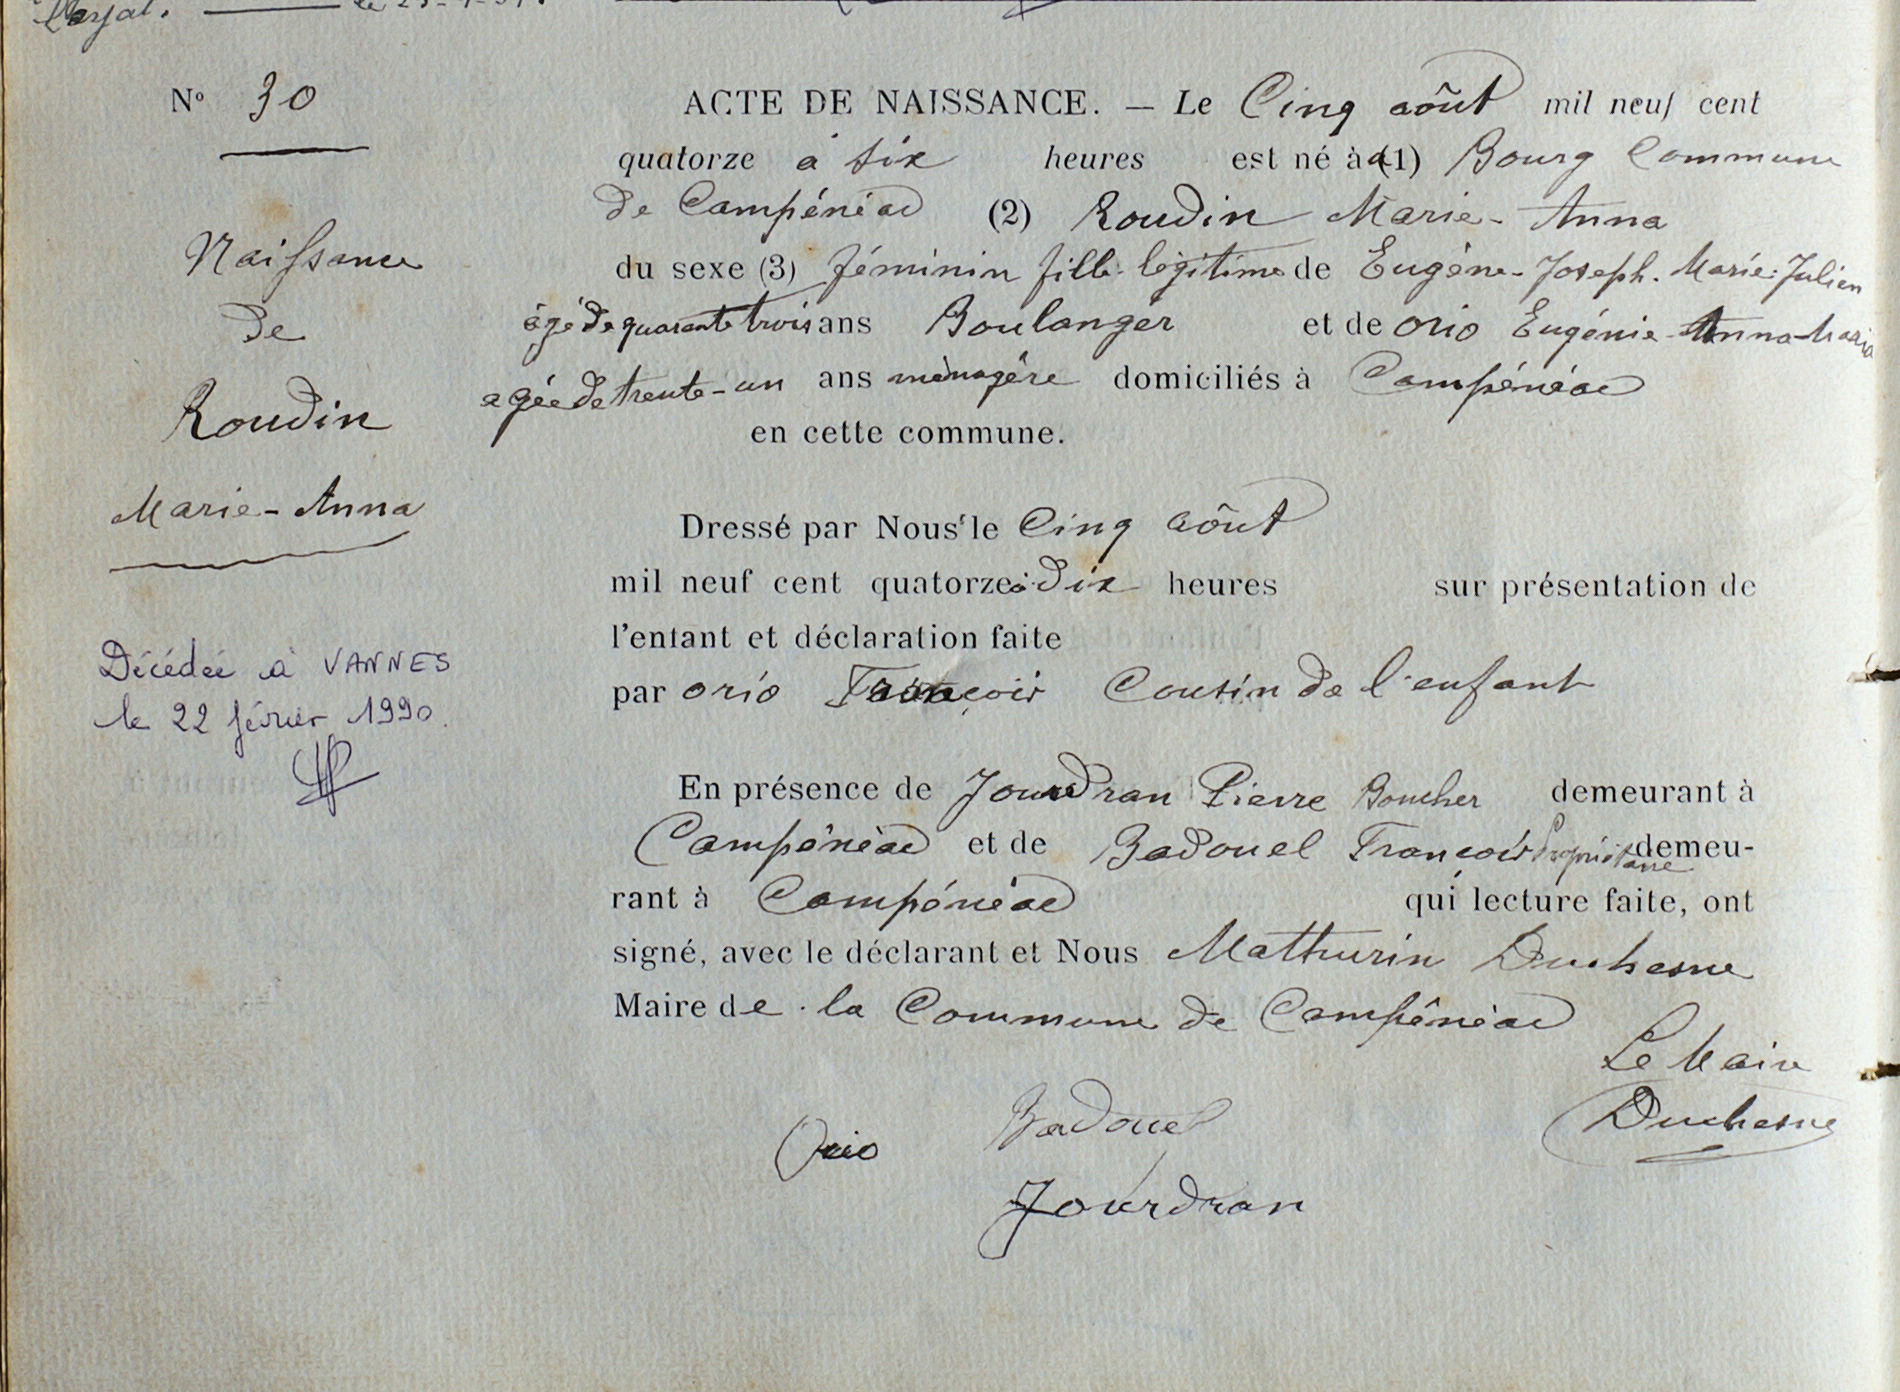 le 25-4-51.
Nº 30
Naissance
de
Roudin
Marie-Anna
Décédée à VANNES
le 22 février 1990.
ACTE DE NAISSANCE. — Le Cinq aôut mil neuf cent
quatorze à six heures est né à (1) Bourg Commune
de Campénéac (2) Roudin Marie-Anna
du sexe (3) féminin fille légitime de Eugène-Joseph-Marie-Julien
âgé de quarante trois ans Boulanger et de Orio Eugénie-Anna-Maria
agée de trente-un ans ménagère domiciliés à Campénéac
en cette commune.
Dressé par Nous le Cinq aôut
mil neuf cent quatorze à dix heures sur présentation de
l'enfant et déclaration faite
par Orio François Cousin de l'enfant
En présence de Jourdran Pierre Boucher demeurant à
Campénéac et de Badouel François Propriétaire demeu-
rant à Campénéac qui lecture faite, ont
signé, avec le déclarant et Nous Mathurin Duchesne
Maire de la Commune de Campénéac
Le Maire
Duchesne
Badouel
Orio
Jourdran